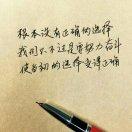 根本没有正确的选择
我们只不过是要努力奋斗
使当初的选择变得正确